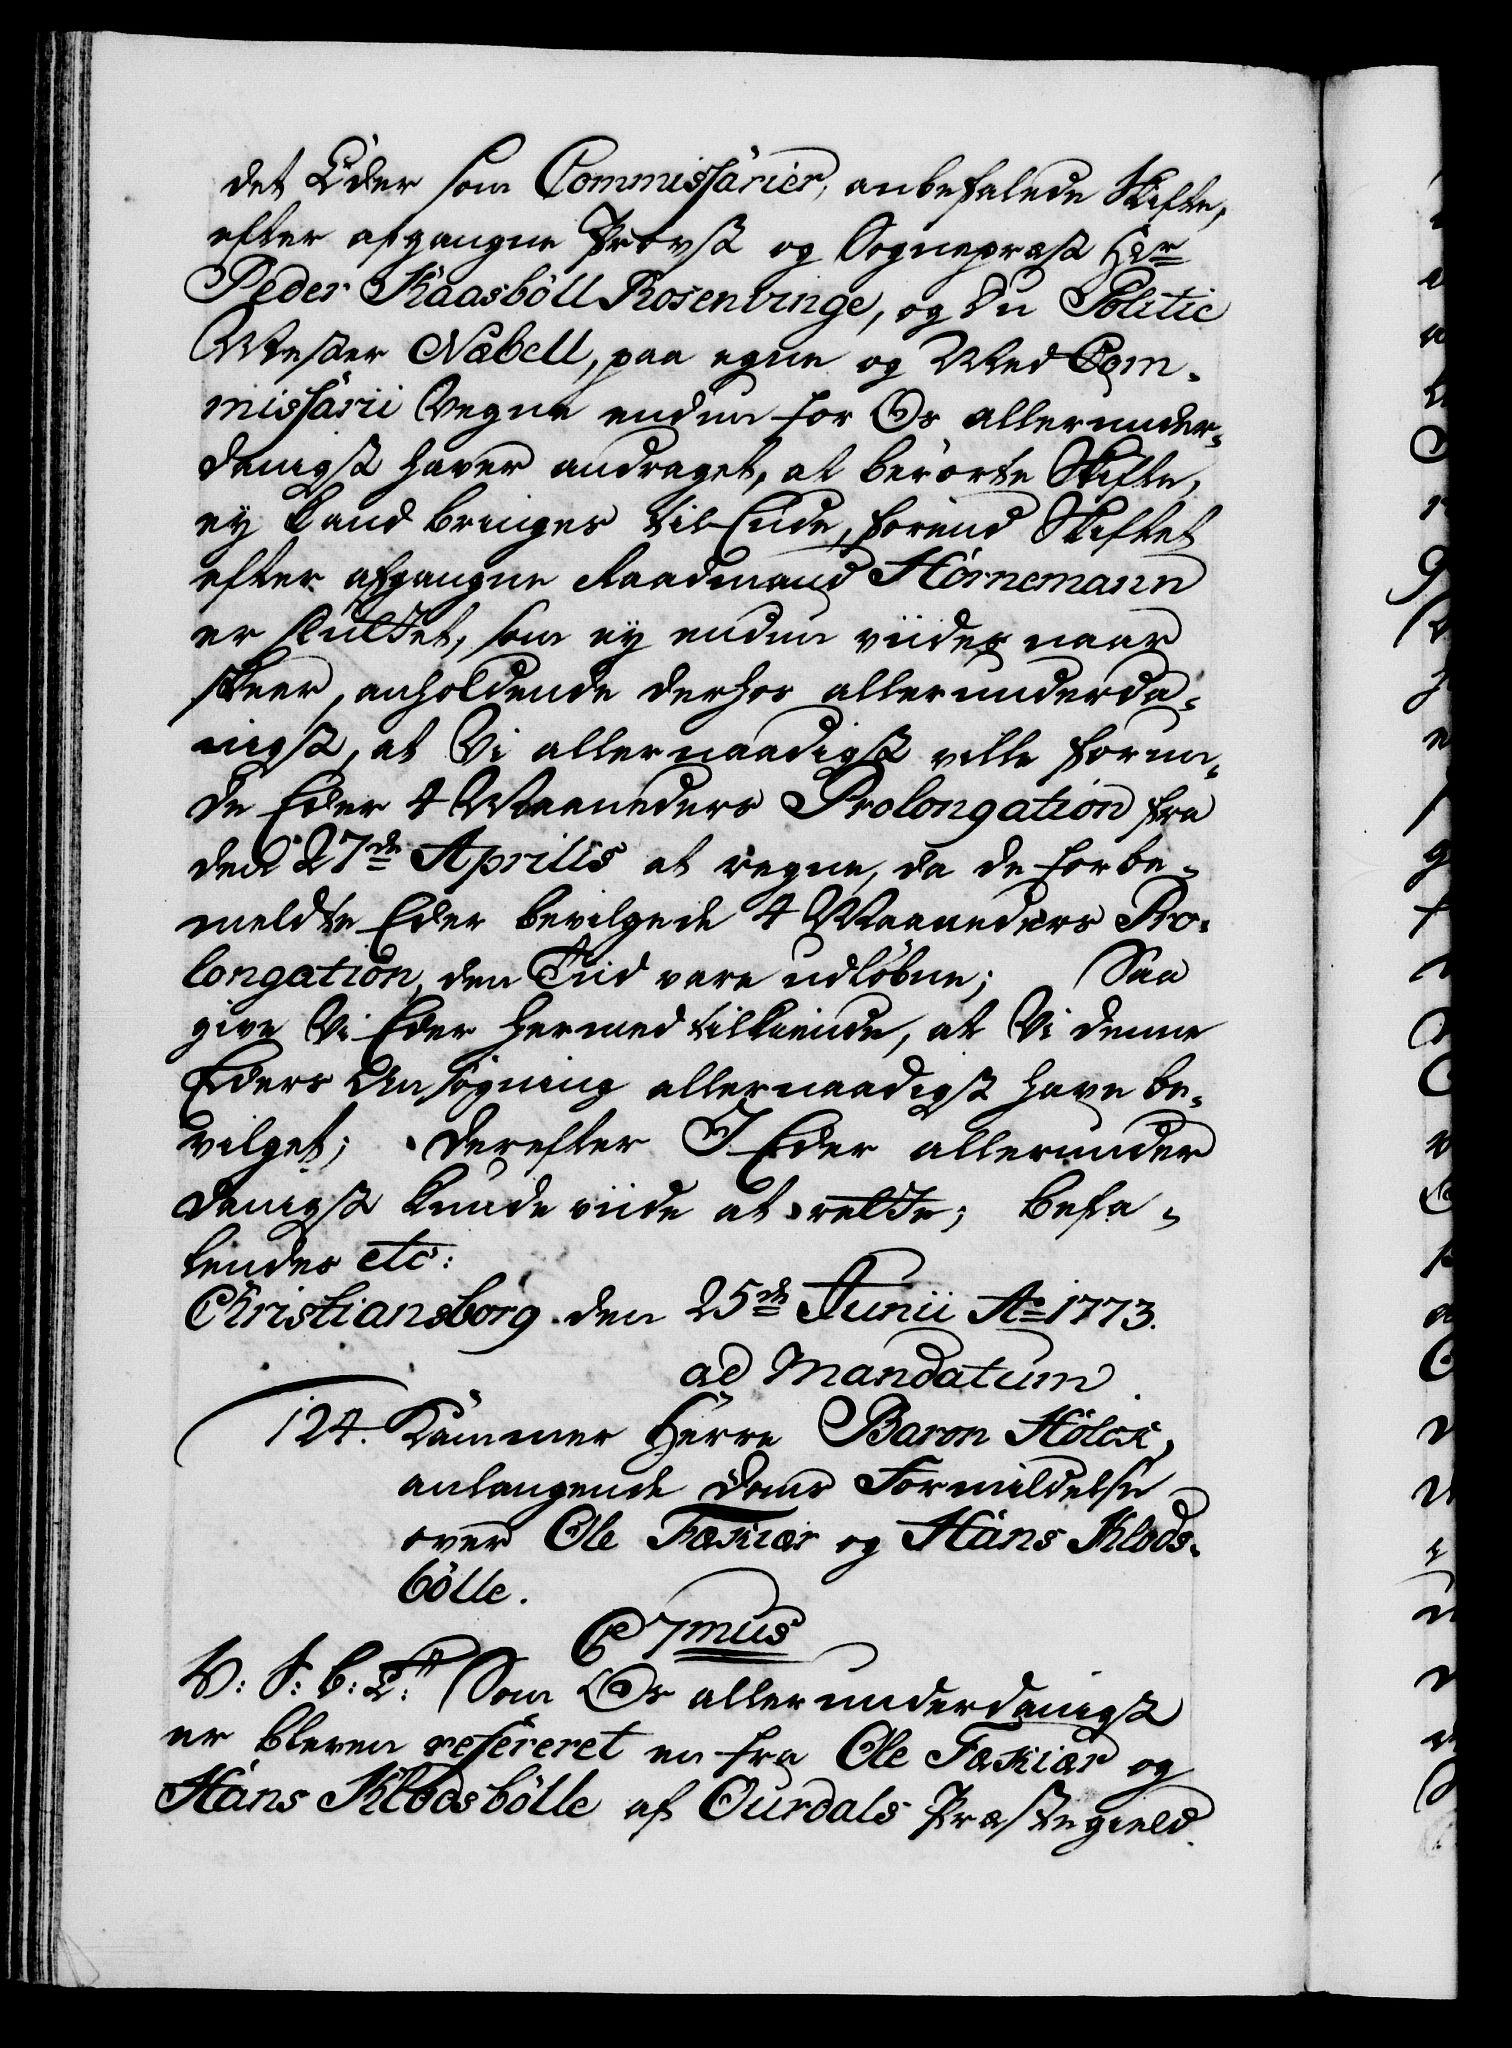 det Eder som Commissarier, anbefalede Skifte,
efter afgangne Provst og Sognepræst Hr
Peder Kaasböll Rosenvinge, og Du Politie
Mester Nabell, paa egne og Med Com-
missarii Vegne endnu for Os allerunder-
danigst haver andraget, at berörte Skifte,
ey kand bringes til Ende, forend Skiftet
efter afgangne Raadmand Hornemann
er sluttet, som ey endnu viides naar
skeer, anholdende derhos allerunderda-
nigst, at Vi allernaadigst ville forun-
de Eder 4 Maaneders Prolongation fra
den 27de Aprilis at regne, da de forbe-
meldte Eder bevilgede 4 Maaneders Pro-
longation, den Tiid vare udløbne; Saa
give Vi Eder hermed tilkiende, at Vi denne
Eders Ansøgning allernaadigst have be-
vilget; derefter I Eder allerunder
danigst kunde viide at rette; befa-
lendes etc:
Christiansborg den 25de Junii Ao 1773.
ad Mandatum
124. Kammer Herre Baron Holck,
anlangende Doms Formildelse
over Ole Fækiær og Hans Klods-
bölle.
C 7mus
V: S: G: T: Som Os allerunderdanigst
er bleven refereret en fra Ole Fækiær og
Hans Klodsbölle af Ourdals Præstegield